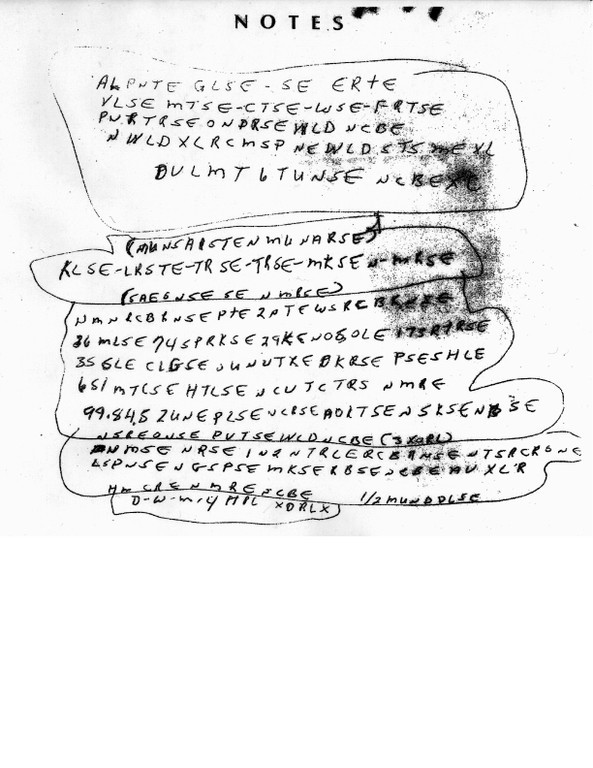 NOTES
ALPNTE GLSE - SE ERTE
VLSE MTSE-CTSE-WSE-FRTSE
PNRTRSEONDRSEWLD NCBE
NWLDXLRCMSP NEWLDSTS MEXL
DULMT6TUNSE NCBEXL
(MUNSARSTENMUNARSE)
KLSE-LRSTE-TRSE-TRSE-MKSEN-MRSE
(SAEGNSE SE NMRSE)
NMNRCBRNSEPTE2PTEWSRCBRNSE
36MLSE 74SPRKSE29KENOSOLE173RTRSE
35GLE CLGSEUNUTXEDKRSE PSESHLE
651MTCSE HTLSENCUTCTRS NMRE
99.84.52UNEPLSENCRSEAOLTSENSKSENBSE
NSREONSE PVTSEWLDNCBE(3XORL)
NMSE NRSE IN2NTRLERCBRNSENTSRCRONE
LSPNSENGSPSEMKSERBSENCBEAUXLR
HM CRENMRENCBE 1/2MUNDDLSE
D-W-M-4 MPL XDRLX